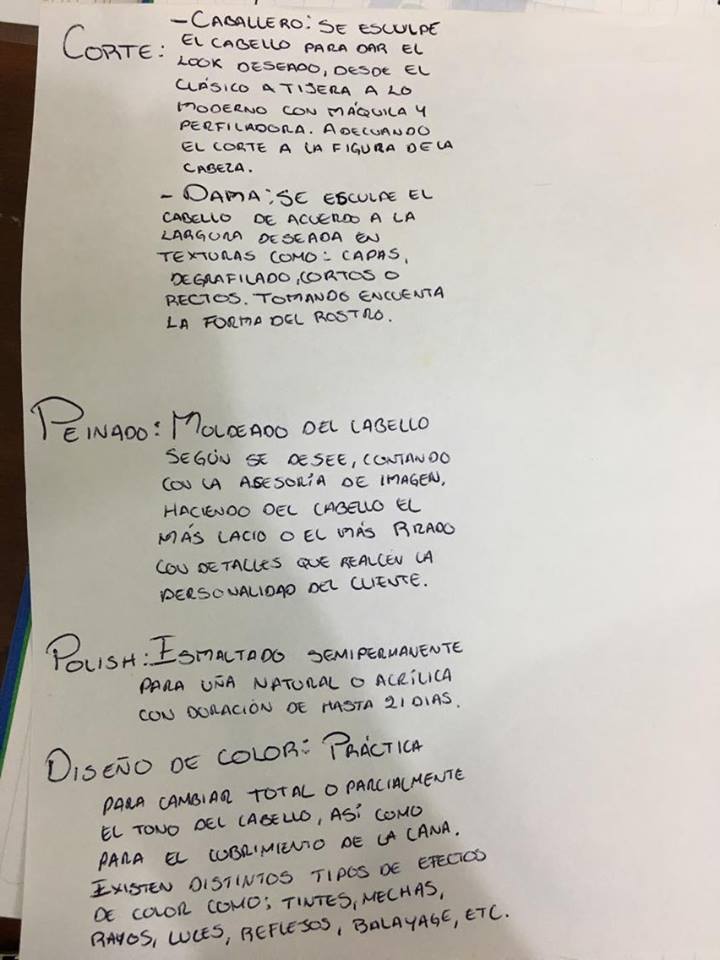 CORTE: - CABALLERO: SE ESCULPE
EL CABELLO PARA DAR EL
LOOK DESEADO, DESDE EL
CLÁSICO A TIJERA A LO
MODERNO CON MÁQUILA Y
PERFILADORA. ADECUANDO
EL CORTE A LA FIGURA DE LA
CABEZA.
- DAMA: SE ESCULPE EL
CABELLO DE ACUERDO A LA
LARGURA DESEADA EN
TEXTURAS COMO: CAPAS,
DEGRAFILADO, CORTOS O
RECTOS. TOMANDO ENCUENTA
LA FORMA DEL ROSTRO.
PEINADO: MOLDEADO DEL CABELLO
SEGÚN SE DESEE, CONTANDO
CON LA ASESORÍA DE IMAGEN,
HACIENDO DEL CABELLO EL
MÁS LACIO O EL MÁS RIZADO
CON DETALLES QUE REALCEN LA
PERSONALIDAD DEL CLIENTE.
POLISH: ESMALTADO SEMIPERMANENTE
PARA UÑA NATURAL O ACRÍLICA
CON DURACIÓN DE HASTA 21 DIAS.
DISEÑO DE COLOR: PRÁCTICA
PARA CAMBIAR TOTAL O PARCIALMENTE
EL TONO DEL CABELLO, ASÍ COMO
PARA EL CUBRIMIENTO DE LA CANA.
EXISTEN DISTINTOS TIPOS DE EFECTOS
DE COLOR COMO: TINTES, MECHAS,
RAYOS, LUCES, REFLEJOS, BALAYAGE, ETC.